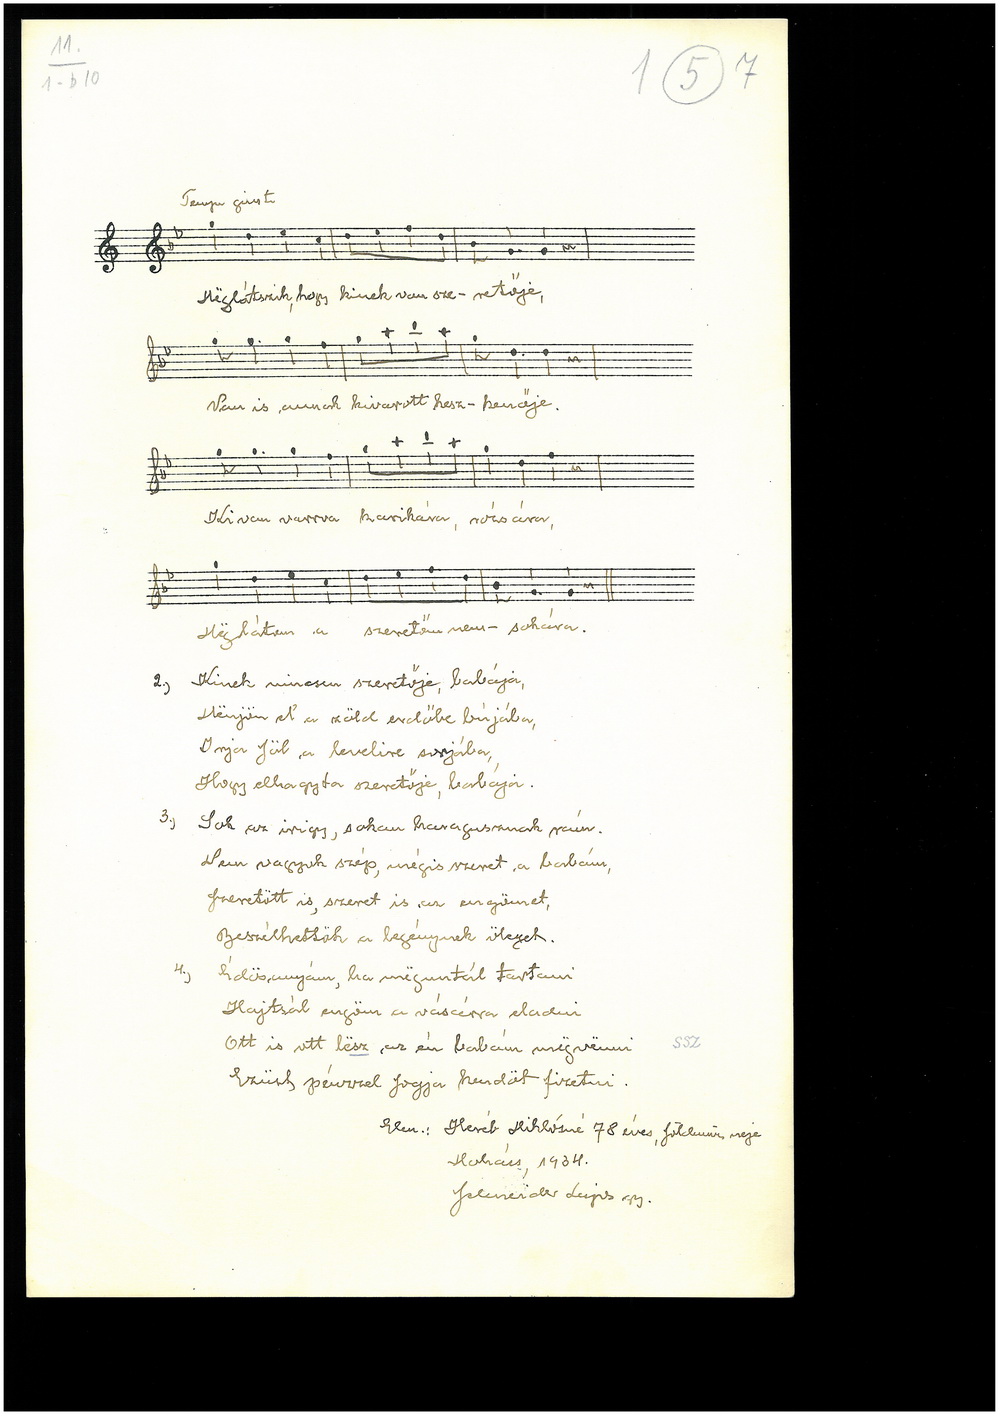 11.
1-b 10
1 5 7
Tempo giusto
Mëglátszik, hogy kinek van sze- retője,
Van is annak kivarott kesz- kenője.
Ki van varrva karikára, rózsára,
Mëglátom a szeretőm nem- sokára.
2.) Kinek nincsen szeretője, babája,
Mënjön el a zöld erdőbe
Irja föl a levelire sorjába,
Hogy elhagyta szeretője, babája.
3.) Sok az irigy, sokan haragusznak rám.
Nem vagyok szép, mégis szeret a babám,
Szeretött is, szeret is az engömet,
Beszélhettök a legénynek
4.) Édösanyám, ha mëguntál tartani
Hajtsál engöm a vásárra eladni
Ott is ott lësz az én babám mëgvënni
SSZ
Ezüst pénzzel fogja kendöt fizetni.
Elm.: Miklósné 78 éves, földmüv. neje
Mohács, 1934.
Schneider Lajos gy.